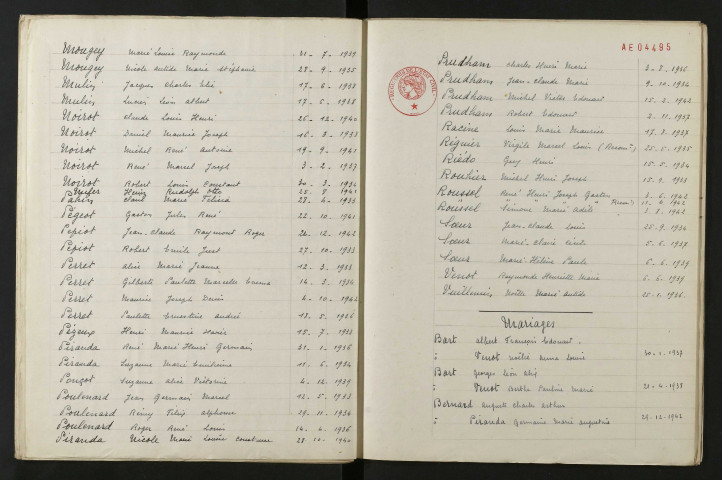 Mougey Marie Louise Raymonde 31-7-1939
Mougey Nicole Antide Marie Stéphanie 28-9-1935
Mulin Jacques Charles Elie 17-6-1938
Mulin Lucien Léon Albert 17-5-1938
Noirot Claude Louis Henri 26-12-1940
Noirot Daniel Maurice Joseph 16-3-1933
Noirot Michel René Antoine 19-9-1941
Noirot René Marcel Joseph 3-2-1937
Noirot Robert Louis Constant 30-3-1934
Henri Rudolph Otto 25-8-1941
Paul Marie Félicie 28-4-1933
Pégeot Gaston Jules René 22-10-1941
Pépiot Jean-Claude Raymond Roger 26-12-1942
Pépiot Robert Emile Just 27-10-1933
Perret Alice Marie Jeanne 12-3-1933
Perret Gilberte Paulette Marcelle 14-8-1934
Perret Maurice Joseph Denis 4-10-1942
Perret Paulette Ernestine André 13-5-1936
Pézeux Henri Maurice Xavier 15-7-1933
Piranda René Marie Henri Germain 21-1-1936
Piranda Suzanne Marie 11-6-1934
Ponçot Suzanne Alice Victorine 4-12-1939
Poulenard Jean Germain Marcel 12-5-1933
Poulenard Rémy Félix Alphonse 29-11-1934
Poulenard Roger René Louis 14-4-1936
Piranda Nicole Marie Louise 28-10-1940
AE04495
Prudham Charles Henri Marie 3-8-1935
Prudham Jean-Claude Marie 9-10-1934
Prudham Michel Victor Edouard 15-2-1942
Prudham Robert Edouard 2-11-1937
Racine Louis Marie Maurice 17-8-1937
Réguier Virgile Marcel Louis 25-5-1935
Riédo Guy Henri 15-5-1934
Roubier Michel Henri Joseph 15-9-1933
Roussel René Henri Joseph Gaston 3-6-1942
Roussel Simone Marie 3-8-1942
Sœur Jean-Claude Louis 25-9-1934
Sœur Marie-Claire Cécile 5-6-1937
Sœur Marie-Hélène Paule 6-6-1939
Venot Raymonde Henriette Marie 6-6-1939
Vuillemin Noëlle Marie Antide 25-1-1936
Mariages
Bart Albert François Edouard
: Venot Noélie Louise 30-1-1937
Bart Georges Léon Alix
: Venot Berthe Pauline Marie 21-4-1938
Bernard Auguste Charles Arthur
: Piranda Germaine Marie Augustine 29-12-1942